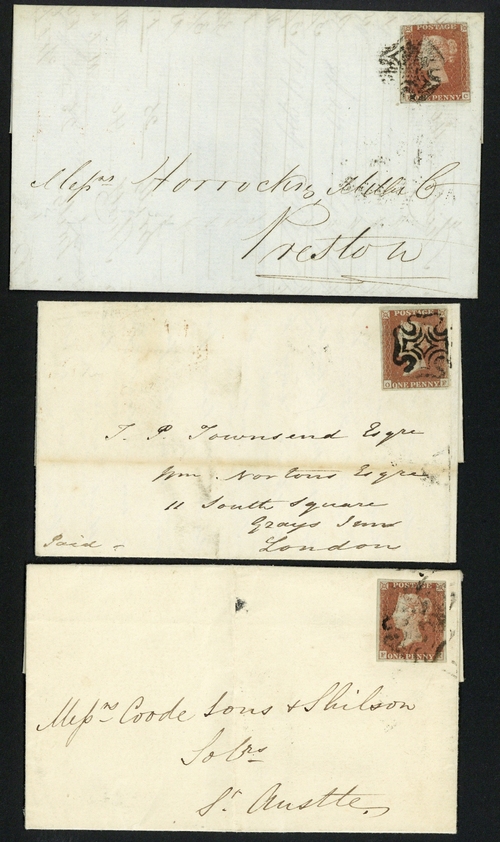 POSTAGE
ONE PENNY
Messrs Horrocks, Miller & Co
Preston
POSTAGE
ONE PENNY
T. P. Townsend Esqre
Wm. Nortons Esqre
11 South Square
Grays Inn
London
Paid
POSTAGE
ONE PENNY
Messrs Coode Sons & Shilson
Solrs
St Austle